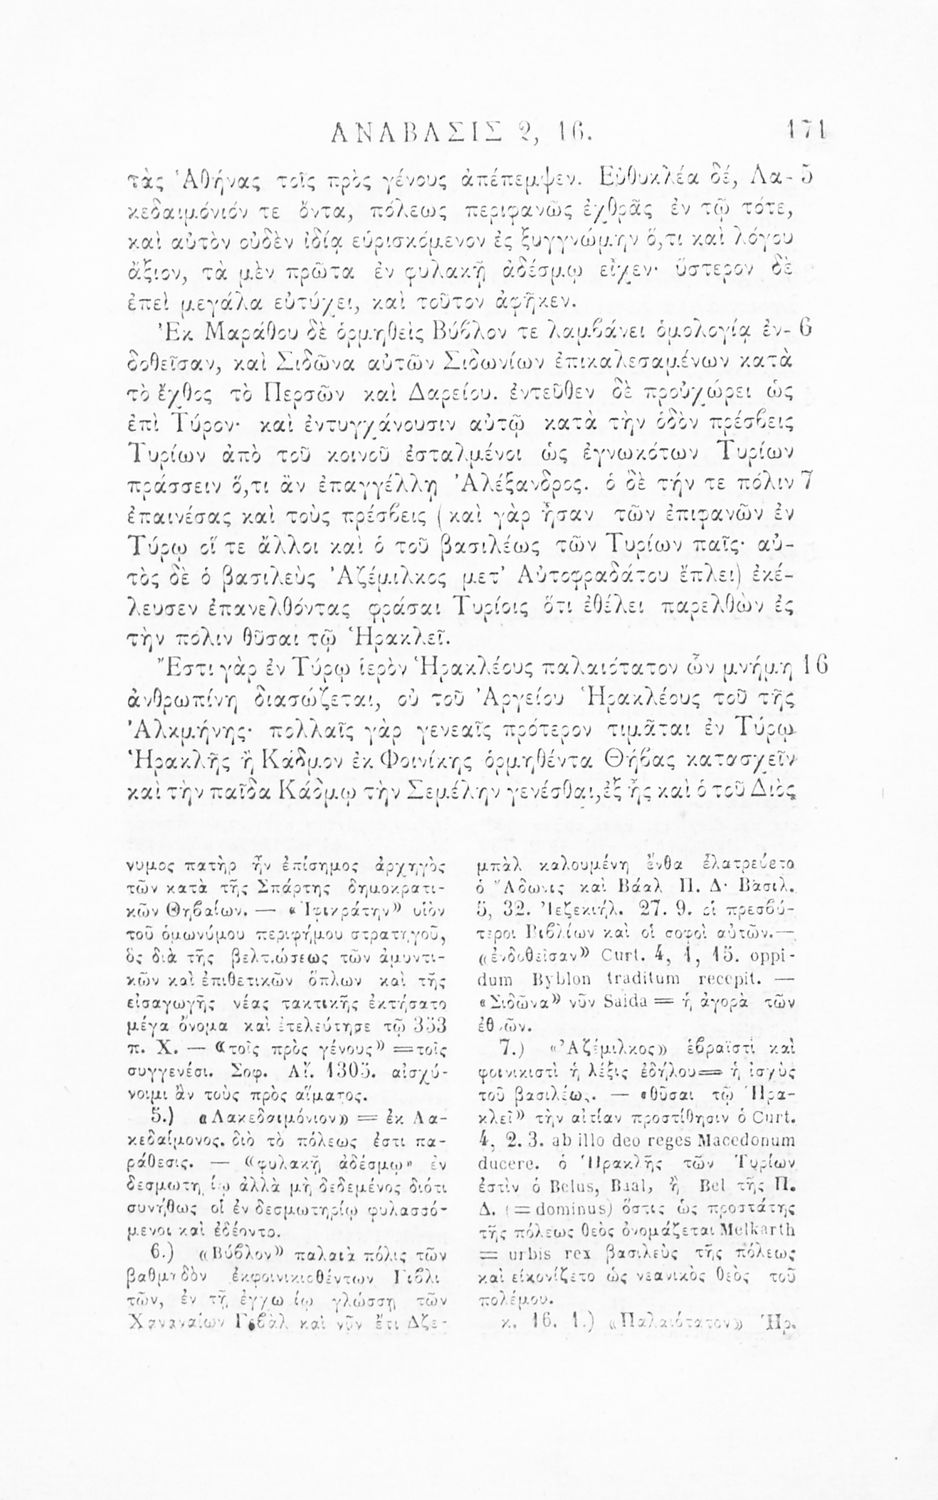 ΑΝΑΒΑΣΙΣ 2, 16. 171
τὰς Ἀθήνας τοῖς πρὸς γένους ἀπέπεμψεν. Εὐθυκλέα δέ, Λα- 5
κεδαιμόνιόν τε ὄντα, πόλεως περιφανῶς ἐχθρᾶς ἐν τῷ τότε,
καὶ αὐτὸν οὐδὲν ἰδίᾳ εὑρισκόμενον ἐς ξυγγνώμην ὅ,τι καὶ λόγου
ἄξιον, τὰ μὲν πρῶτα ἐν φυλακῇ ἀδέσμῳ εἶχεν· ὕστερον δὲ
ἐπεὶ μεγάλα εὐτύχει, καὶ τοῦτον ἀφῆκεν.
Ἐκ Μαράθου δὲ ὁρμηθεὶς Βύβλον τε λαμβάνει ὁμολογίᾳ ἐν- 6
δοθεῖσαν, καὶ Σιδῶνα αὐτῶν Σιδωνίων ἐπικαλεσαμένων κατὰ
τὸ ἔχθος τὸ Περσῶν καὶ Δαρείου. ἐντεῦθεν δὲ προὐχώρει ὡς
ἐπὶ Τύρον· καὶ ἐντυγχάνουσιν αὐτῷ κατὰ τὴν ὁδὸν πρέσβεις
Τυρίων ἀπὸ τοῦ κοινοῦ ἐσταλμένοι ὡς ἐγνωκότων Τυρίων
πράσσειν ὅ,τι ἂν ἐπαγγέλλῃ Ἀλέξανδρος. ὁ δὲ τήν τε πόλιν 7
ἐπαινέσας καὶ τοὺς πρέσβεις (καὶ γὰρ ἦσαν τῶν ἐπιφανῶν ἐν
Τύρῳ οἵ τε ἄλλοι καὶ ὁ τοῦ βασιλέως τῶν Τυρίων παῖς· αὐ-
τὸς δὲ ὁ βασιλεὺς Ἀζέμιλκος μετ' Αὐτοφραδάτου ἔπλει) ἐκέ-
λευσεν ἐπανελθόντας φράσαι Τυρίοις ὅτι ἐθέλει παρελθὼν ἐς
τὴν πόλιν θῦσαι τῷ Ἡρακλεῖ.
Ἔστι γὰρ ἐν Τύρῳ ἱερὸν Ἡρακλέους παλαιότατον ὧν μνήμῃ 16
ἀνθρωπίνη διασώζεται, οὐ τοῦ Ἀργείου Ἡρακλέους τοῦ τῆς
Ἀλκμήνης· πολλαῖς γὰρ γενεαῖς πρότερον τιμᾶται ἐν Τύρῳ
Ἡρακλῆς ἢ Κάδμον ἐκ Φοινίκης ὁρμηθέντα Θήβας κατασχεῖν
καὶ τὴν παῖδα Κάδμῳ τὴν Σεμέλην γενέσθαι, ἐξ ἧς καὶ ὁ τοῦ Διὸς
νυμος πατὴρ ἦν ἐπίσημος ἀρχηγὸς
τῶν κατὰ τῆς Σπάρτης δημοκρατι-
κῶν Θηβαίων. — «Ἰφικράτην» υἱὸν
τοῦ ὁμωνύμου περιφήμου στρατηγοῦ,
ὃς διὰ τῆς βελτιώσεως τῶν ἀμυντι-
κῶν καὶ ἐπιθετικῶν ὅπλων καὶ τῆς
εἰσαγωγῆς νέας τακτικῆς ἐκτήσατο
μέγα ὄνομα καὶ ἐτελεύτησε τῷ 353
π. Χ. — «τοῖς πρὸς γένους» = τοῖς
συγγενέσι. Σοφ. Αἴ. 1305. αἰσχύ-
νοιμι ἂν τοὺς πρὸς αἵματος.
5.) «Λακεδαιμόνιον» = ἐκ Λα-
κεδαίμονος. διὸ τὸ πόλεως ἐστι πα-
ράθεσις. — «φυλακῇ ἀδέσμῳ» ἐν
δεσμωτηρίῳ ἀλλὰ μὴ δεδεμένος διότι
συνήθως οἱ ἐν δεσμωτηρίῳ φυλασσό-
μενοι καὶ ἐδέοντο.
6.) «Βύβλον» παλαιὰ πόλις τῶν
βαθμηδὸν ἐκφοινικισθέντων Γιβλι
τῶν, ἐν τῇ ἐγχωρίῳ γλώσσῃ τῶν
Χαναναίων Γιβὰλ καὶ νῦν ἔτι Δζε-
μπὰλ καλουμένη ἔνθα ἐλατρεύετο
ὁ Ἄδωνις καὶ Βάαλ Π. Δ· Βασιλ.
5, 32. Ἰεζεκιήλ. 27. 9. οἱ πρεσβύ-
τεροι Βιβλίων καὶ οἱ σοφοὶ αὐτῶν.—
«ἐνδοθεῖσαν» Curt. 4, 1, 15. oppi-
dum Byblon traditum recepit. —
«Σιδῶνα» νῦν Saida = ἡ ἀγορὰ τῶν
ἐθνῶν.
7.) «Ἀζέμιλκος» ἑβραϊστὶ καὶ
φοινικιστὶ ἡ λέξις ἐδήλου = ἡ ἰσχὺς
τοῦ βασιλέως. — «θῦσαι τῷ Ἡρα-
κλεῖ» τὴν αἰτίαν προστίθησιν ὁ Curt.
4, 2. 3. ab illo deo reges Macedonum
ducere. ὁ Ἡρακλῆς τῶν Τυρίων
ἐστὶν ὁ Belus, Baal, ἢ Bel τῆς Π.
Δ. (= dominus) ὅστις ὡς προστάτης
τῆς πόλεως θεὸς ὀνομάζεται Melkarth
= urbis rex βασιλεὺς τῆς πόλεως
καὶ εἰκονίζετο ὡς νεανικὸς θεὸς τοῦ
πολέμου.
κ. 16. 1.) «Παλαιότατον» Ἡρ.